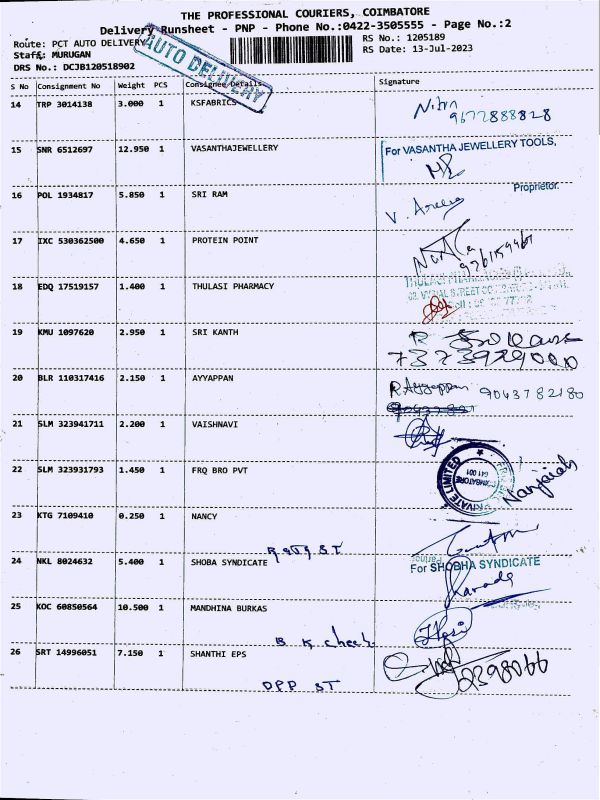 THE PROFESSIONAL COURIERS, COIMBATORE
Delivery Runsheet - PNP - Phone No.:0422-3505555 - Page No.:2
Route: PCT AUTO DELIVERY
RS No.: 1205189
Staff: MURUGAN
RS Date: 13-Jul-2023
DRS No.: DCJB120518902
AUTO DELIVERY
S No Consignment No Weight PCS Consignee Details Signature
14 TRP 3014138 3.000 1 KSFABRICS
9677888828
15 SNR 6512697 12.950 1 VASANTHAJEWELLERY
For VASANTHA JEWELLERY TOOLS,
Proprietor.
16 POL 1934817 5.850 1 SRI RAM
17 IXC 530362500 4.650 1 PROTEIN POINT
18 EDQ 17519157 1.400 1 THULASI PHARMACY
19 KMU 1097620 2.950 1 SRI KANTH
7373929000
20 BLR 110317416 2.150 1 AYYAPPAN
R Ayyappan 9043782180
21 SLM 323941711 2.200 1 VAISHNAVI
22 SLM 323931793 1.450 1 FRQ BRO PVT
PRIVATE LIMITED
COIMBATORE
641 001
Nanjaiah
23 KTG 7109410 0.250 1 NANCY
24 NKL 8024632 5.400 1 SHOBA SYNDICATE
For SHOBHA SYNDICATE
25 KOC 60850564 10.500 1 MANDHINA BURKAS
B K
26 SRT 14996051 7.150 1 SHANTHI EPS
DPP ST